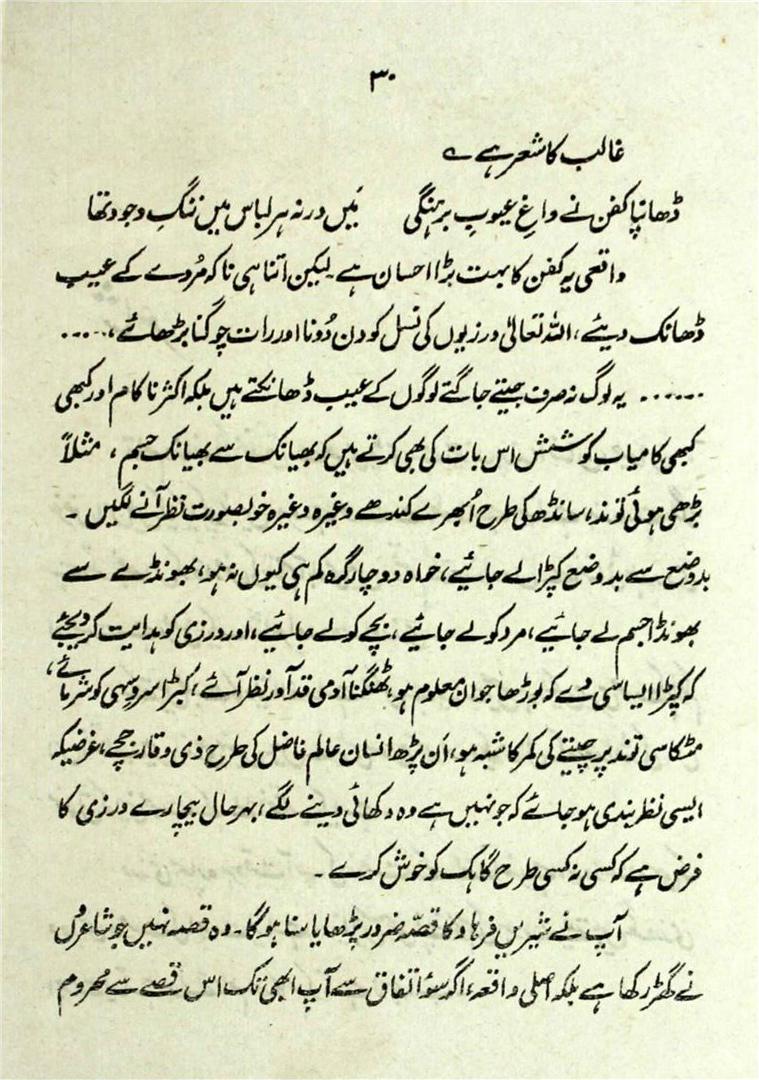 ۳۰
غالب کا شعر ہے ؎
ڈھانپا کفن نے داغِ عیوبِ برہنگی میں ورنہ ہر لباس میں ننگِ وجود تھا
واقعی یہ کفن کا بہت بڑا احسان ہے۔ لیکن اتنا ہی نا کہ مُردے کے عیب
ڈھانک دیئے، اللہ تعالیٰ درزیوں کی نسل کو دن دُونا اور رات چوگنا بڑھائے، .....
...... یہ لوگ نہ صرف جیتے جاگتے لوگوں کے عیب ڈھانکتے ہیں بلکہ اکثر ناکام اور کبھی
کبھی کامیاب کوشش اس بات کی بھی کرتے ہیں کہ بھیانک سے بھیانک جسم، مثلاً
بڑھی ہوئی توند، سانڈھ کی طرح اُبھرے کندھے وغیرہ وغیرہ خوبصورت نظر آنے لگیں ۔
بدوضع سے بدوضع کپڑا لے جائیے، خواہ دو چار گرہ کم ہی کیوں نہ ہو، بھونڈے سے
بھونڈا جسم لے جائیے، مرد کو لے جائیے، بچے کو لے جائیے، اور درزی کو ہدایت کر دیجئے
کہ کپڑا ایسا سی دے کہ بوڑھا جوان معلوم ہو، ٹھنگنا آدمی قدآور نظر آئے، کُبڑا سروِ سہی کو شرمائے،
مٹکا سی توند پر چیتے کی کمر کا شبہ ہو، اَن پڑھ انسان عالم فاضل کی طرح ذی وقار جچے، غرضیکہ
ایسی نظر بندی ہو جائے کہ جو نہیں ہے وہ دکھائی دینے لگے، بہرحال بیچارے درزی کا
فرض ہے کہ کسی نہ کسی طرح گاہک کو خوش کرے ۔
آپ نے شیریں فرہاد کا قصّہ ضرور پڑھا یا سنا ہوگا۔ وہ قصہ نہیں جو شاعروں
نے گھڑ رکھا ہے بلکہ اصلی واقعہ، اگر سوُ اتفاق سے آپ ابھی تک اس قصے سے محروم